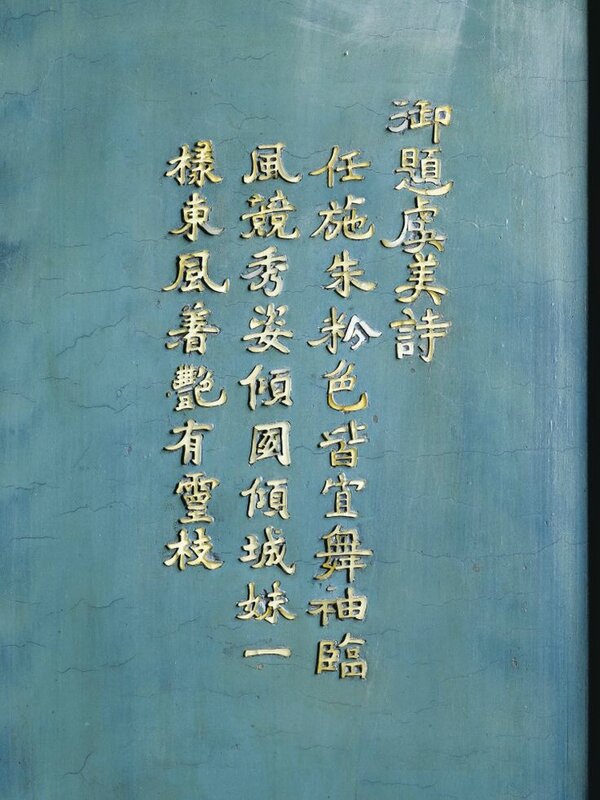 御題虞美詩
任施朱粉色皆宜舞袖臨
風競秀姿傾國傾城妹一
樣東風着艷有靈枝